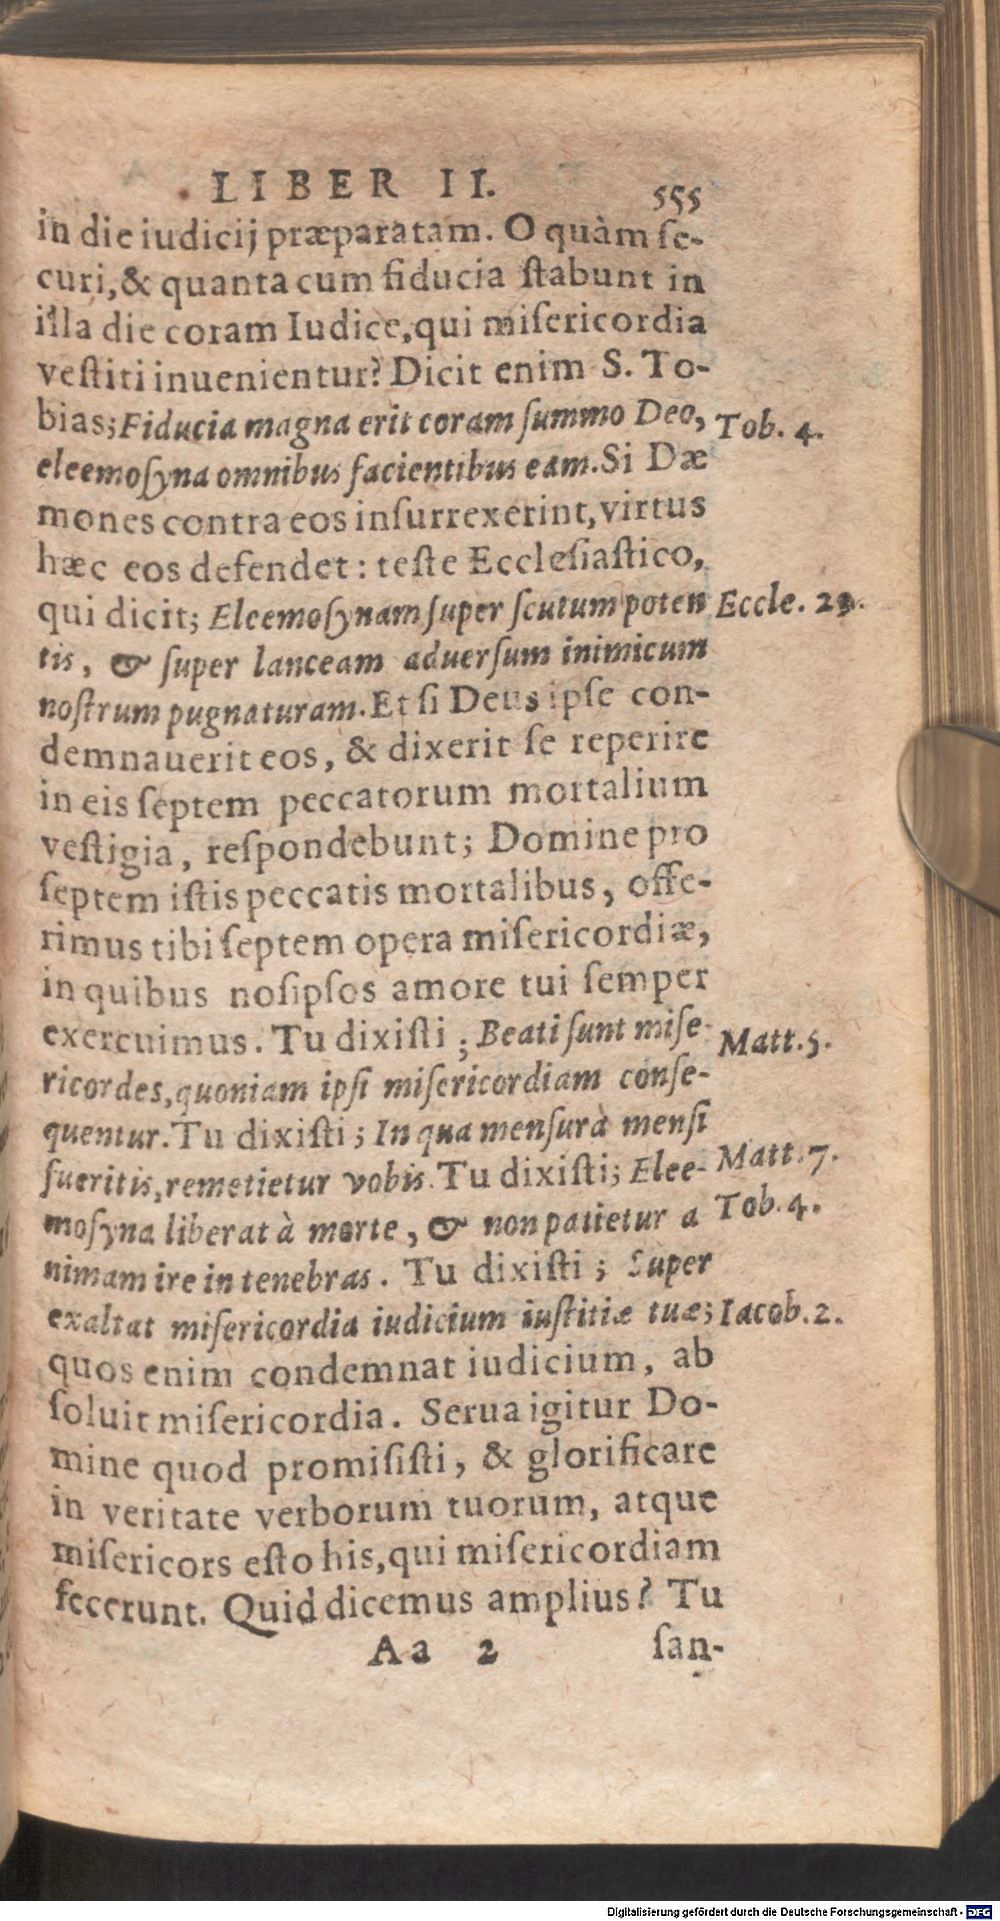 LIBER II. 555
in die iudicij præparatam. O quàm ſe-
curi, & quanta cum fiducia ſtabunt in
illa die coram Iudice, qui miſericordia
veſtiti inuenientur? Dicit enim S. To-
bias; Fiducia magna erit coram ſummo Deo, Tob. 4.
eleemoſyna omnibus facientibus eam. Si Dæ
mones contra eos inſurrexerint, virtus
hæc eos defendet: teſte Eccleſiaſtico,
qui dicit; Eleemoſynam ſuper ſcutum poten Eccle. 29.
tis, & ſuper lanceam aduerſum inimicum
noſtrum pugnaturam. Et ſi Deus ipſe con-
demnauerit eos, & dixerit ſe reperire
in eis ſeptem peccatorum mortalium
veſtigia, reſpondebunt; Domine pro
ſeptem iſtis peccatis mortalibus, offe-
rimus tibi ſeptem opera miſericordiæ,
in quibus noſipſos amore tui ſemper
exercuimus. Tu dixiſti; Beati ſunt miſe- Matt. 5.
ricordes, quoniam ipſi miſericordiam conſe-
quentur. Tu dixiſti; In qua menſura menſi
fueritis, remetietur vobis. Tu dixiſti; Elee- Matt. 7.
moſyna liberat à morte, & non patietur a Tob. 4.
nimam ire in tenebras. Tu dixiſti; Super
exaltat miſericordia iudicium iuſtitiæ tuæ; Iacob. 2.
quos enim condemnat iudicium, ab
ſoluit miſericordia. Serua igitur Do-
mine quod promiſiſti, & glorificare
in veritate verborum tuorum, atque
miſericors eſto his, qui miſericordiam
fecerunt. Quid dicemus amplius? Tu
Aa 2 ſan-
Digitalisierung gefördert durch die Deutsche Forschungsgemeinschaft - DFG